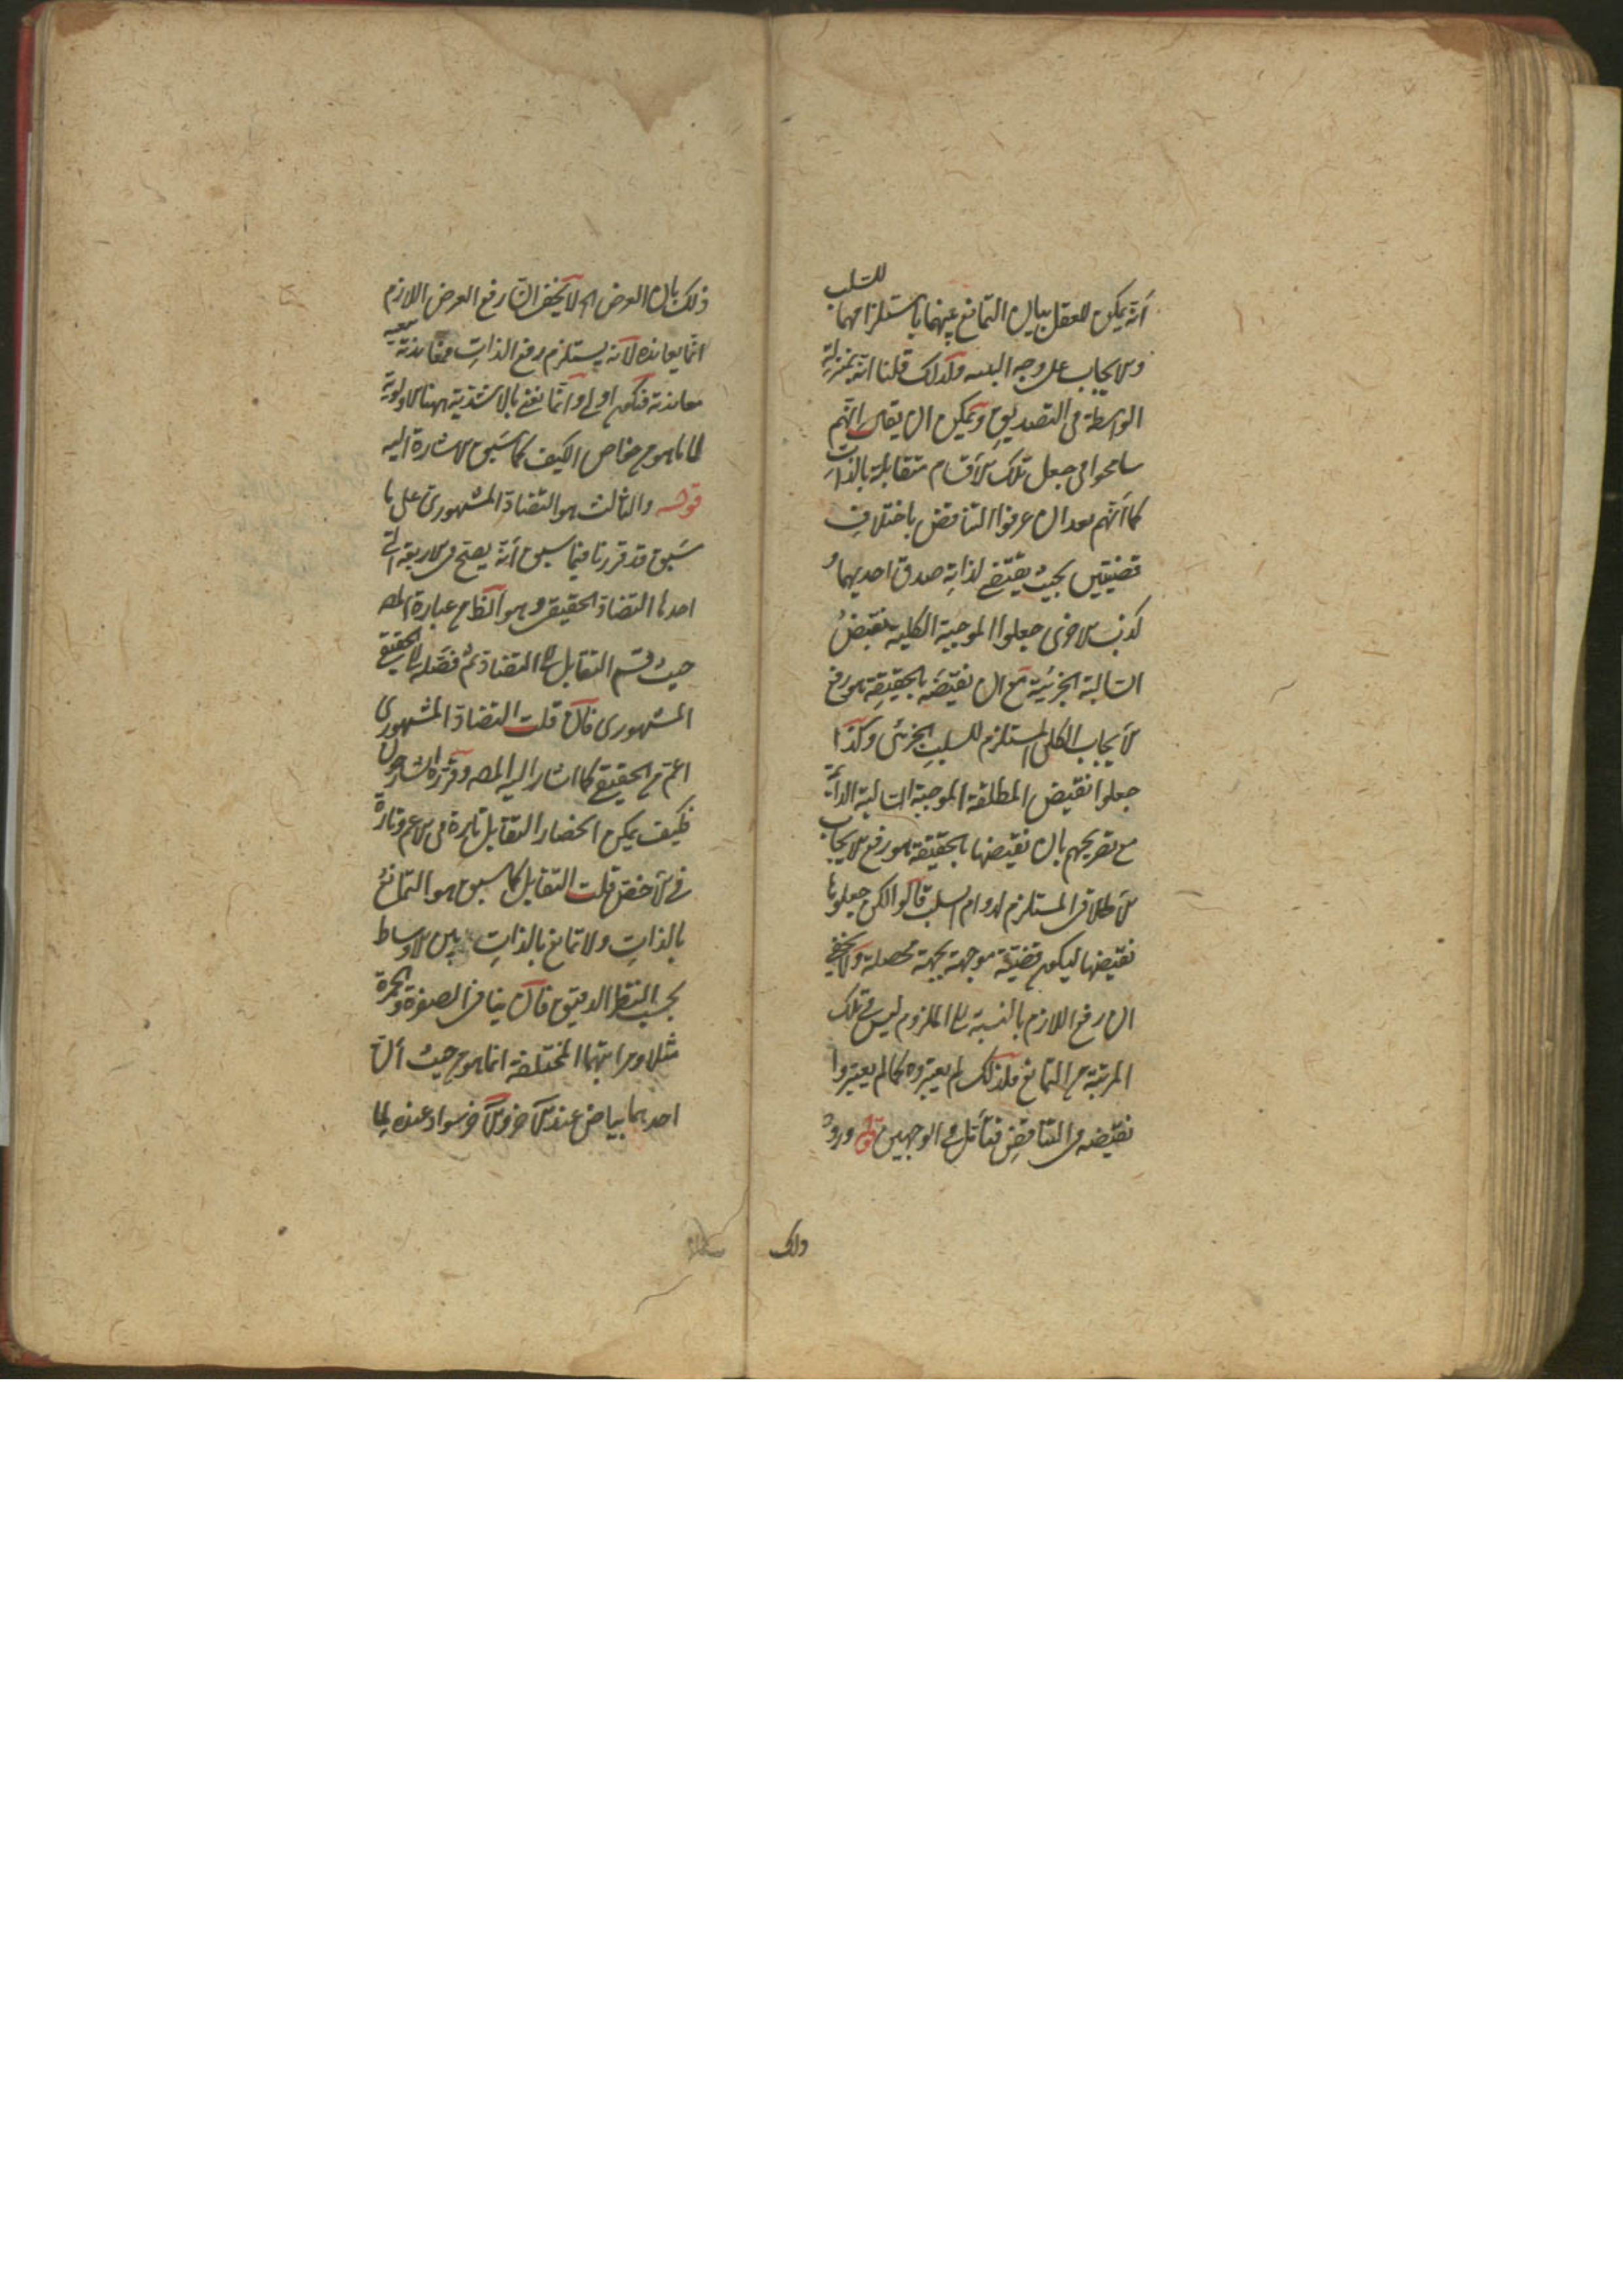 أنه يمكن للعقل بيان التمانع بينهما باستلزامهما للسلب
والايجاب على وجه ولذلك قلنا انه بمنزلة
الواسطة في التصديق ويمكن ان يقال انهم
سامحوا في جعل تلك الأقسام متقابلة بالذات
كما أنهم بعد ان عرفوا التناقض باختلاف
قضيتين بحيث يقتضي لذاته صدق احديهما
كذب الاخرى جعلوا الموجبة الكلية نقيض
السالبة الجزئية مع ان نقيضه بالحقيقة هو رفع
الايجاب الكلي المستلزم للسلب الجزئي وكذا
جعلوا نقيض المطلقة الموجبة السالبة الدائمة
مع تصريحهم بان نقيضها بالحقيقة هو رفع الايجاب
الاطلاقي المستلزم لدوام السلب قالوا لكن جعلوها
نقيضها ليكون قضية موجهة بجهة محصلة ولا يخفى
ان رفع اللازم بالنسبة الى الملزوم ليس في تلك
المرتبة من التمانع فلذلك لم يعتبروه كما لم يعتبروا
نقيضه في التناقض فتأمل في الوجهين قوله ورود
ذلك
ذلك بان العرض الخ لا يخفى ان رفع العرض اللازم
انما يعانده لانه يستلزم رفع الذات فمعاندته
معاندته فتكون اولى وانما نعني بالاشدية ههنا الاولوية
لا ما هو من خواص الكيف كما سبق الاشارة اليه
قوله والثالث هو التضاد المشهوري على ما
سبق قد قررنا فيما سبق أنه يصح في الاربعة
احدها التضاد الحقيقي وهو الظاهر من عبارة المص
حيث قسم التقابل الى التضاد ثم فصله الى الحقيقي
المشهوري فان قلت التضاد المشهوري
اعم من الحقيقي كما اشار اليه المص وقرره الشارحون
فكيف يمكن انحصار التقابل تارة في الاعم وتارة
في الأخص قلت التقابل كما سبق هو التمانع
بالذات ولا تمانع بالذات بين الاوساط
بحسب النظر الدقيق فان تنافي الصفرة والحمرة
مثلا ومراتبهما المختلفة انما هو من حيث أن
احدهما بياض عند الآخر والآخر سواد عنده لما